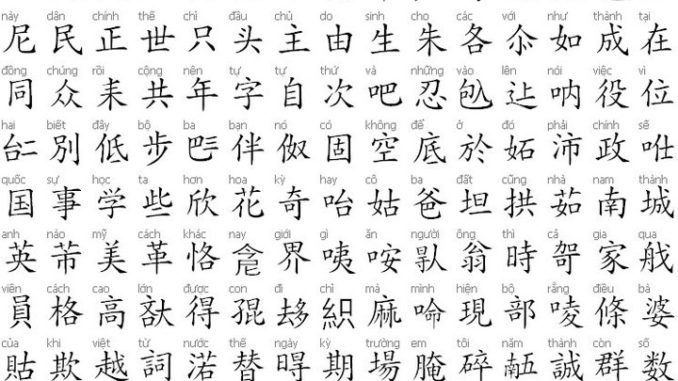 này dân chính thế chỉ đầu chủ do sinh cho các với như thành tại
尼 民 正 世 只 头 主 由 生 朱 各 如 成 在
đồng chúng rồi cộng nên tự tự thứ và những vào lên nói việc vì
同 众 耒 共 年 字 自 次 吧 忍 呐 役 位
hai biết đây bộ ba bạn nó có không để ở đó phải chính sẽ
𠄩 別 低 步 𠀧 伴 伮 固 空 底 於 妬 沛 政
quốc sự học ta hơn hoa kỳ hay cô ba đất cũng nhà nam thành
国 事 学 些 欣 花 奇 咍 姑 爸 坦 拱 茹 南 城
anh nào mỹ cách khác nay giới gì ăn người ông thì cả gia qua
英 芇 美 革 恪 界 咦 咹 翁 時 哿 家
viên cách cao lớn được con đi chỉ mà minh hiện bộ rằng điều bà
員 格 高 得 𡥵 織 麻 現 部 條 婆
của khi việt từ nước thế ngày kỳ trường em tôi năm thành còn số
貼 欺 越 詞 渃 替 期 場 腌 碎 誠 群 数